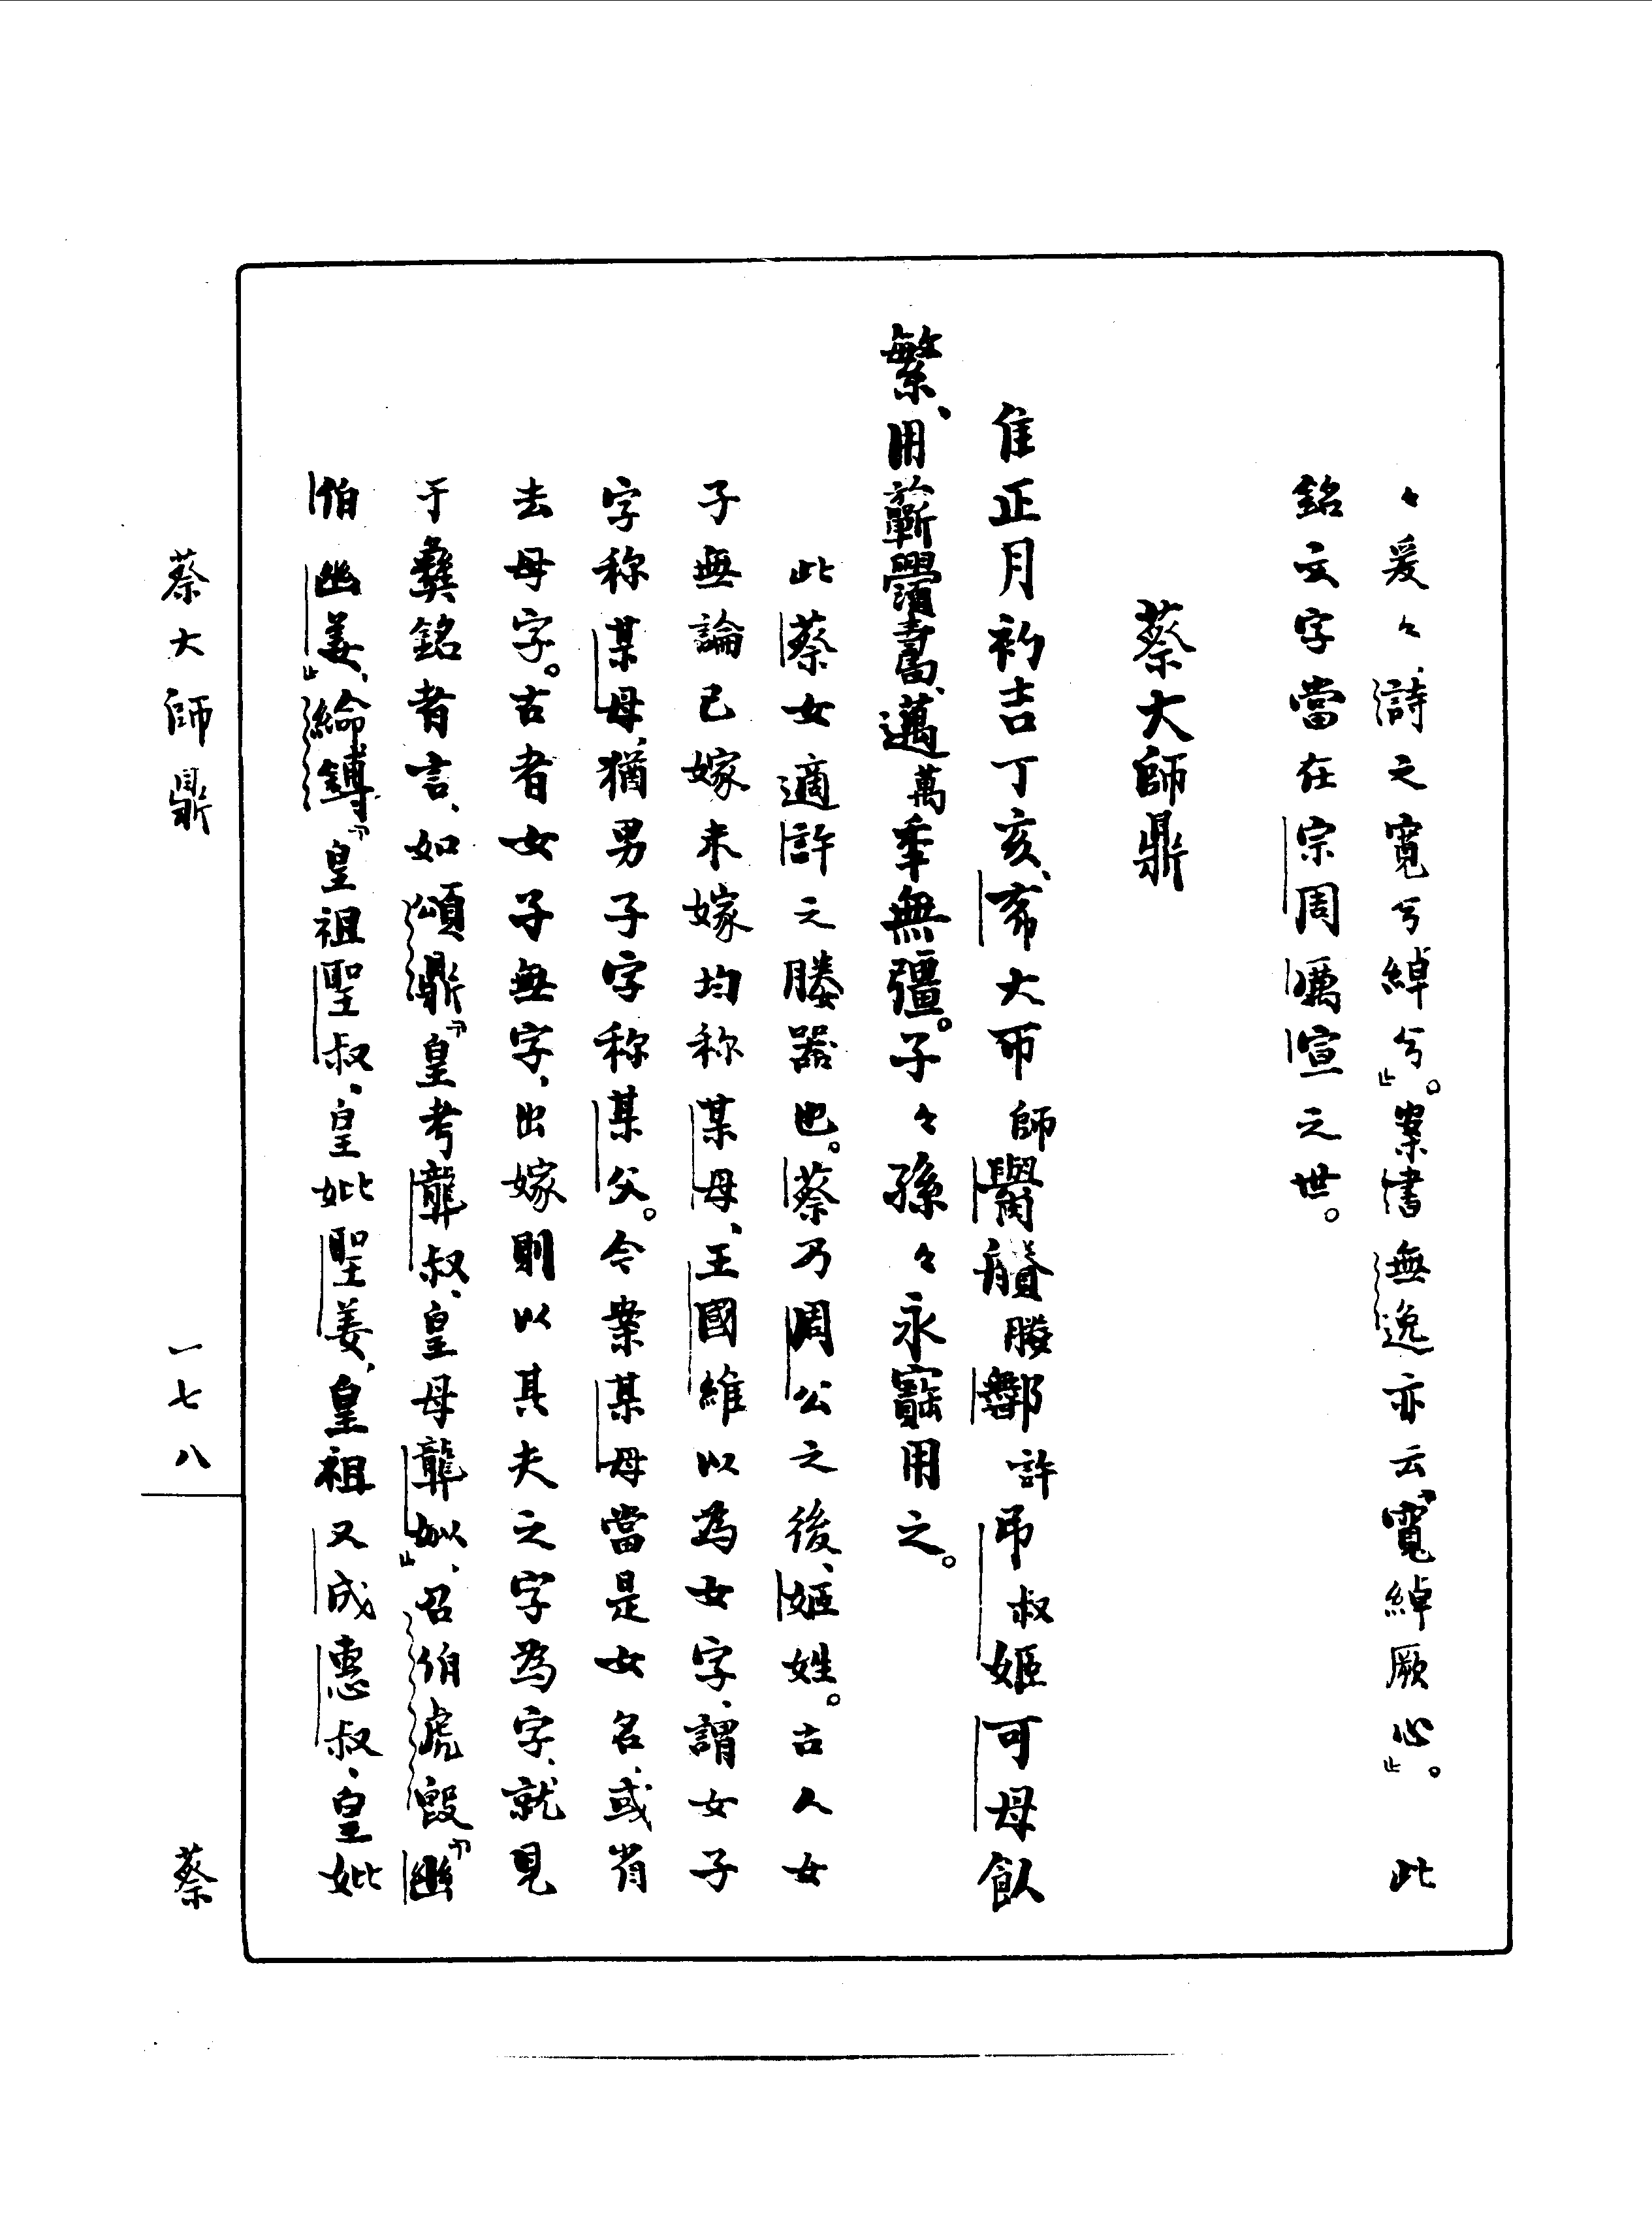 々爰々、詩之寬兮綽兮』。案書無逸亦云『寬綽厥心』。此
銘文字當在宗周厲宣之世。
蔡大師鼎
隹正月初吉丁亥、蔡大帀師䑂許弔叔姬可母飤
繁、用󠄁眉壽、邁萬年無彊。子々孫々永寶用之。
此蔡女適許之媵器也。蔡乃周公之後、姬姓。古人女
子無論已嫁未嫁均称某母、王國維以為女字、謂女子
字称某母、猶男子字称某父。今案某母當是女名、或省
去母字。古者女子無字、出嫁則以其夫之字為字、就見
于彝銘者言、如頌鼎『皇考龔叔、皇母龔姒』、召伯虎𣪘『幽
伯幽姜』、綸鎛『皇祖聖叔、皇妣聖姜、皇祖又成惠叔、皇妣
蔡大師鼎 一七八 蔡